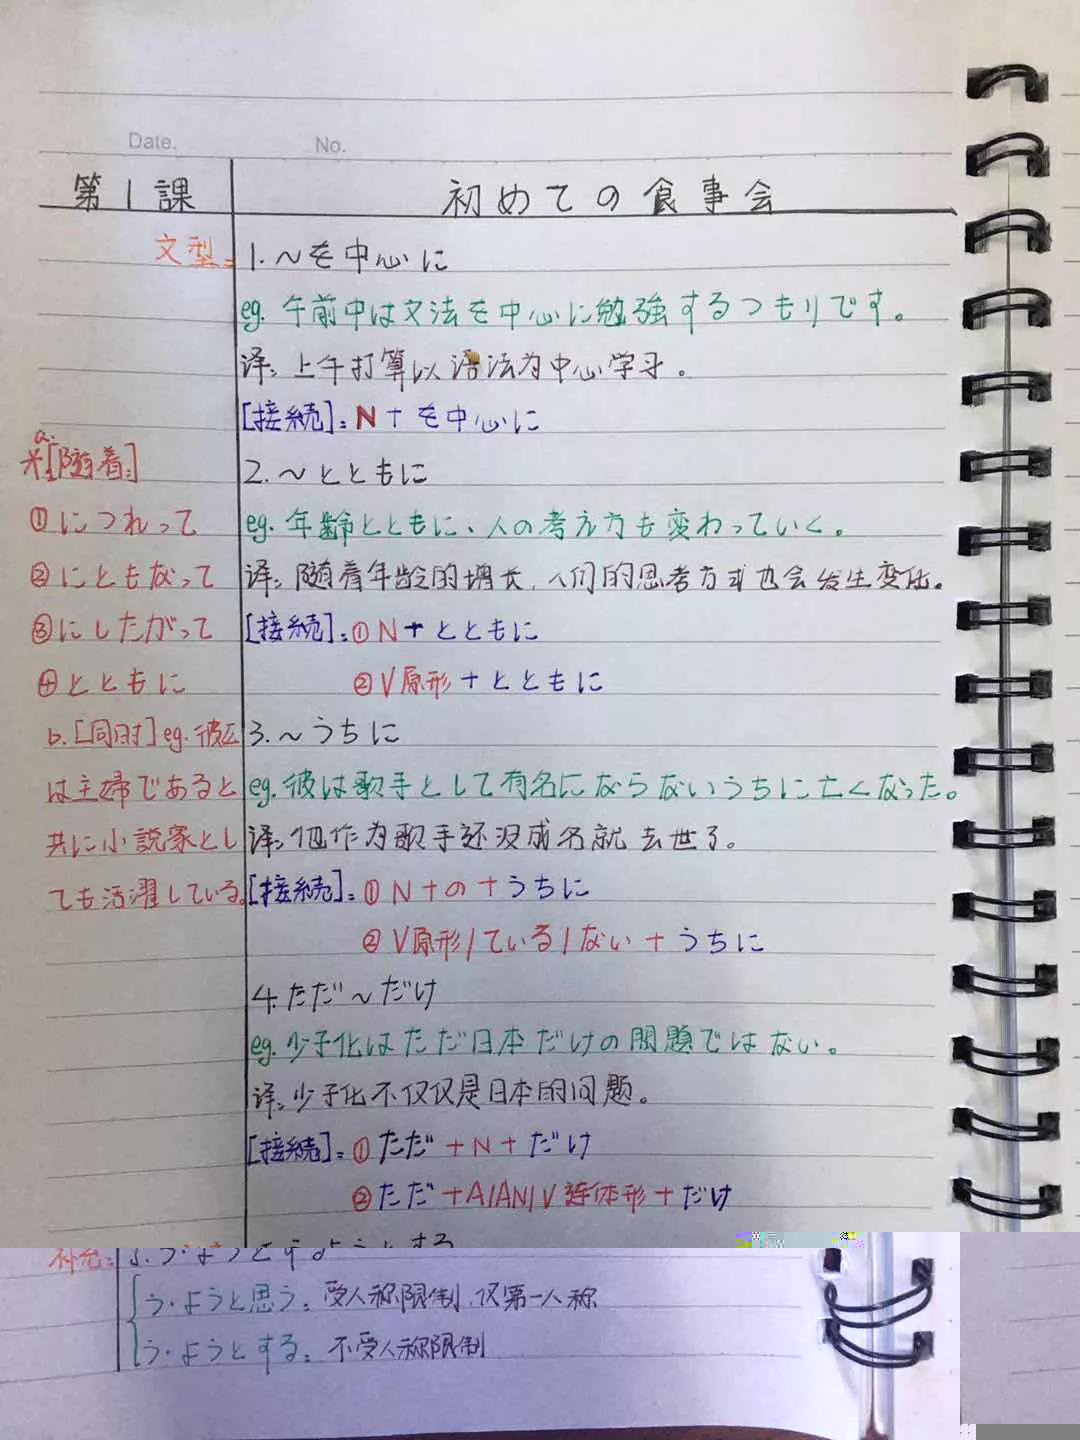 Date. No.
第1課 初めての食事会
文型: 1.～を中心に
eg. 午前中は文法を中心に勉強するつもりです。
译: 上午打算以语法为中心学习。
[接続]: N+を中心に
a.
※[随着:] 2.～とともに
①につれって eg. 年齢とともに、人の考え方も変わっていく。
②にともなって 译: 随着年龄的增长,人们的思考方式也会发生变化。
③にしたがって [接続]: ①N+とともに
④とともに ②V原形+とともに
b.[同时] eg. 彼女 3.～うちに
は主婦であると eg. 彼は歌手として有名にならないうちに亡くなった。
共に小説家とし 译: 他作为歌手还没成名就去世了。
ても活躍している。 [接続]: ①N+の+うちに
②V原形/ている/ない+うちに
4.ただ～だけ
eg. 少子化はただ日本だけの問題ではない。
译: 少子化不仅仅是日本的问题。
[接続]: ①ただ+N+だけ
②ただ+A/AN/V連体形+だけ
补充:
う・ようと思う: 受人称限制,仅第一人称
う・ようとする: 不受人称限制